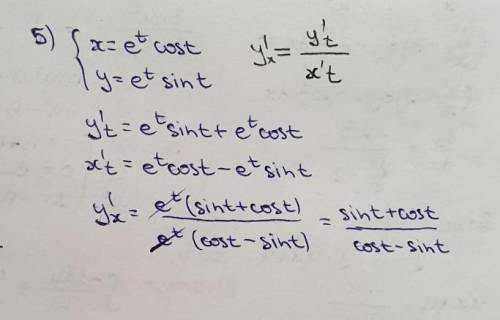 5) { x = eᵗ cost    y'ₓ = y't / x't
y = eᵗ sint
y't = eᵗ sint + eᵗ cost
x't = eᵗ cost − eᵗ sint
y'ₓ = eᵗ (sint + cost) / eᵗ (cost − sint) = sint + cost / cost − sint